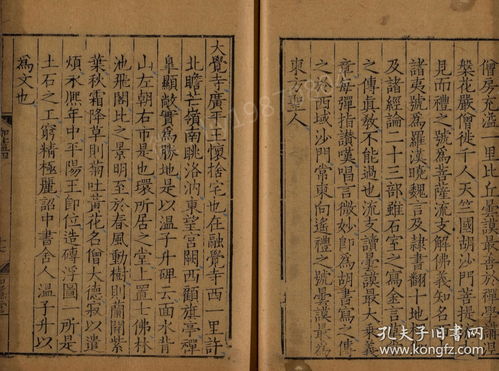 僧房充溢一里比丘曇謨最善於禪學講涅
槃花嚴僧徒千人天竺國胡沙門菩提
見而禮之號為菩薩流支解佛義知名
諸夷號為羅漢曉魏言及隸書翻十地
及諸經論二十三部雖石室之寫金言
之傳眞教不能過也流支讀曇謨最大乘義
章每彈指讚嘆唱言微妙即為胡書寫之傳
之於西域沙門常東向遙禮之號曇謨最為
東方聖人
大覺寺廣平王懷捨宅也在融覺寺西一里許
北瞻芒嶺南眺洛汭東望宮闕西顧旗亭禪
皐顯敞實為勝地是以溫子升碑云面水背
山左朝右市是也環所居之堂上置七佛林
池飛閣比之景明至於春風動樹則蘭開紫
葉秋霜降草則菊吐黃花名僧大德寂以遣
煩永熙年中平陽王即位造磚浮圖一所是
土石之工窮精極麗詔中書舍人溫子升以
為文也
孔夫子旧书网
www.kongfz.com